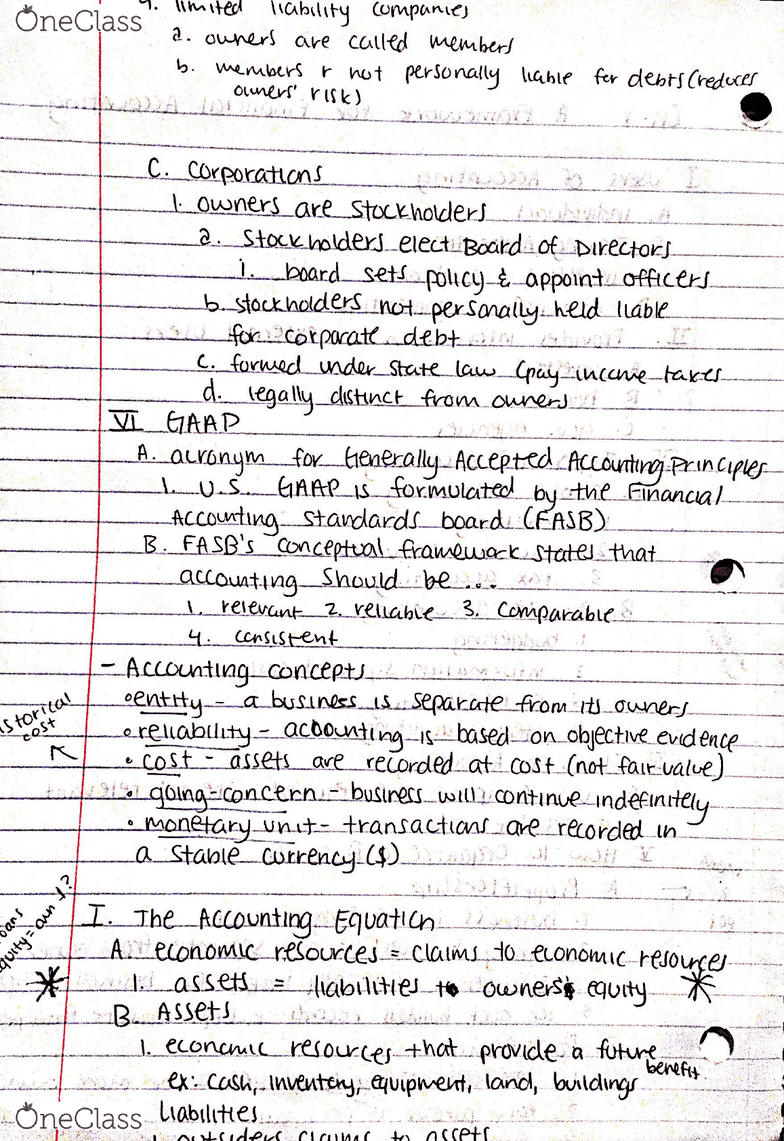 OneClass
4. limited liability companies
a. owners are called members
b. members r not personally liable for debts (reduces
owners' risk)
C. Corporations
1. owners are stockholders
a. stockholders elect Board of Directors
i. board sets policy & appoint officers
b. stockholders not personally held liable
for corporate debt
c. formed under state law (pay income taxes
d. legally distinct from owners
VI GAAP
A. acronym for Generally Accepted Accounting Principles
1. U.S. GAAP is formulated by the Financial
Accounting Standards board (FASB)
B. FASB's conceptual framework states that
accounting should be...
1. relevant 2. reliable 3. Comparable
4. consistent
- Accounting concepts
• entity - a business is separate from its owners
• reliability - accounting is based on objective evidence
historical
cost
• cost - assets are recorded at cost (not fair value)
• going-concern - business will continue indefinitely
• monetary unit - transactions are recorded in
a stable currency ($)
equity = own it?
I. The Accounting Equation
A. economic resources = claims to economic resources
* 1. assets = liabilities to owners equity *
B. Assets
1. economic resources that provide a future
benefit
ex: cash, inventory, equipment, land, buildings
Liabilities
1. outsiders claims to assets
OneClass